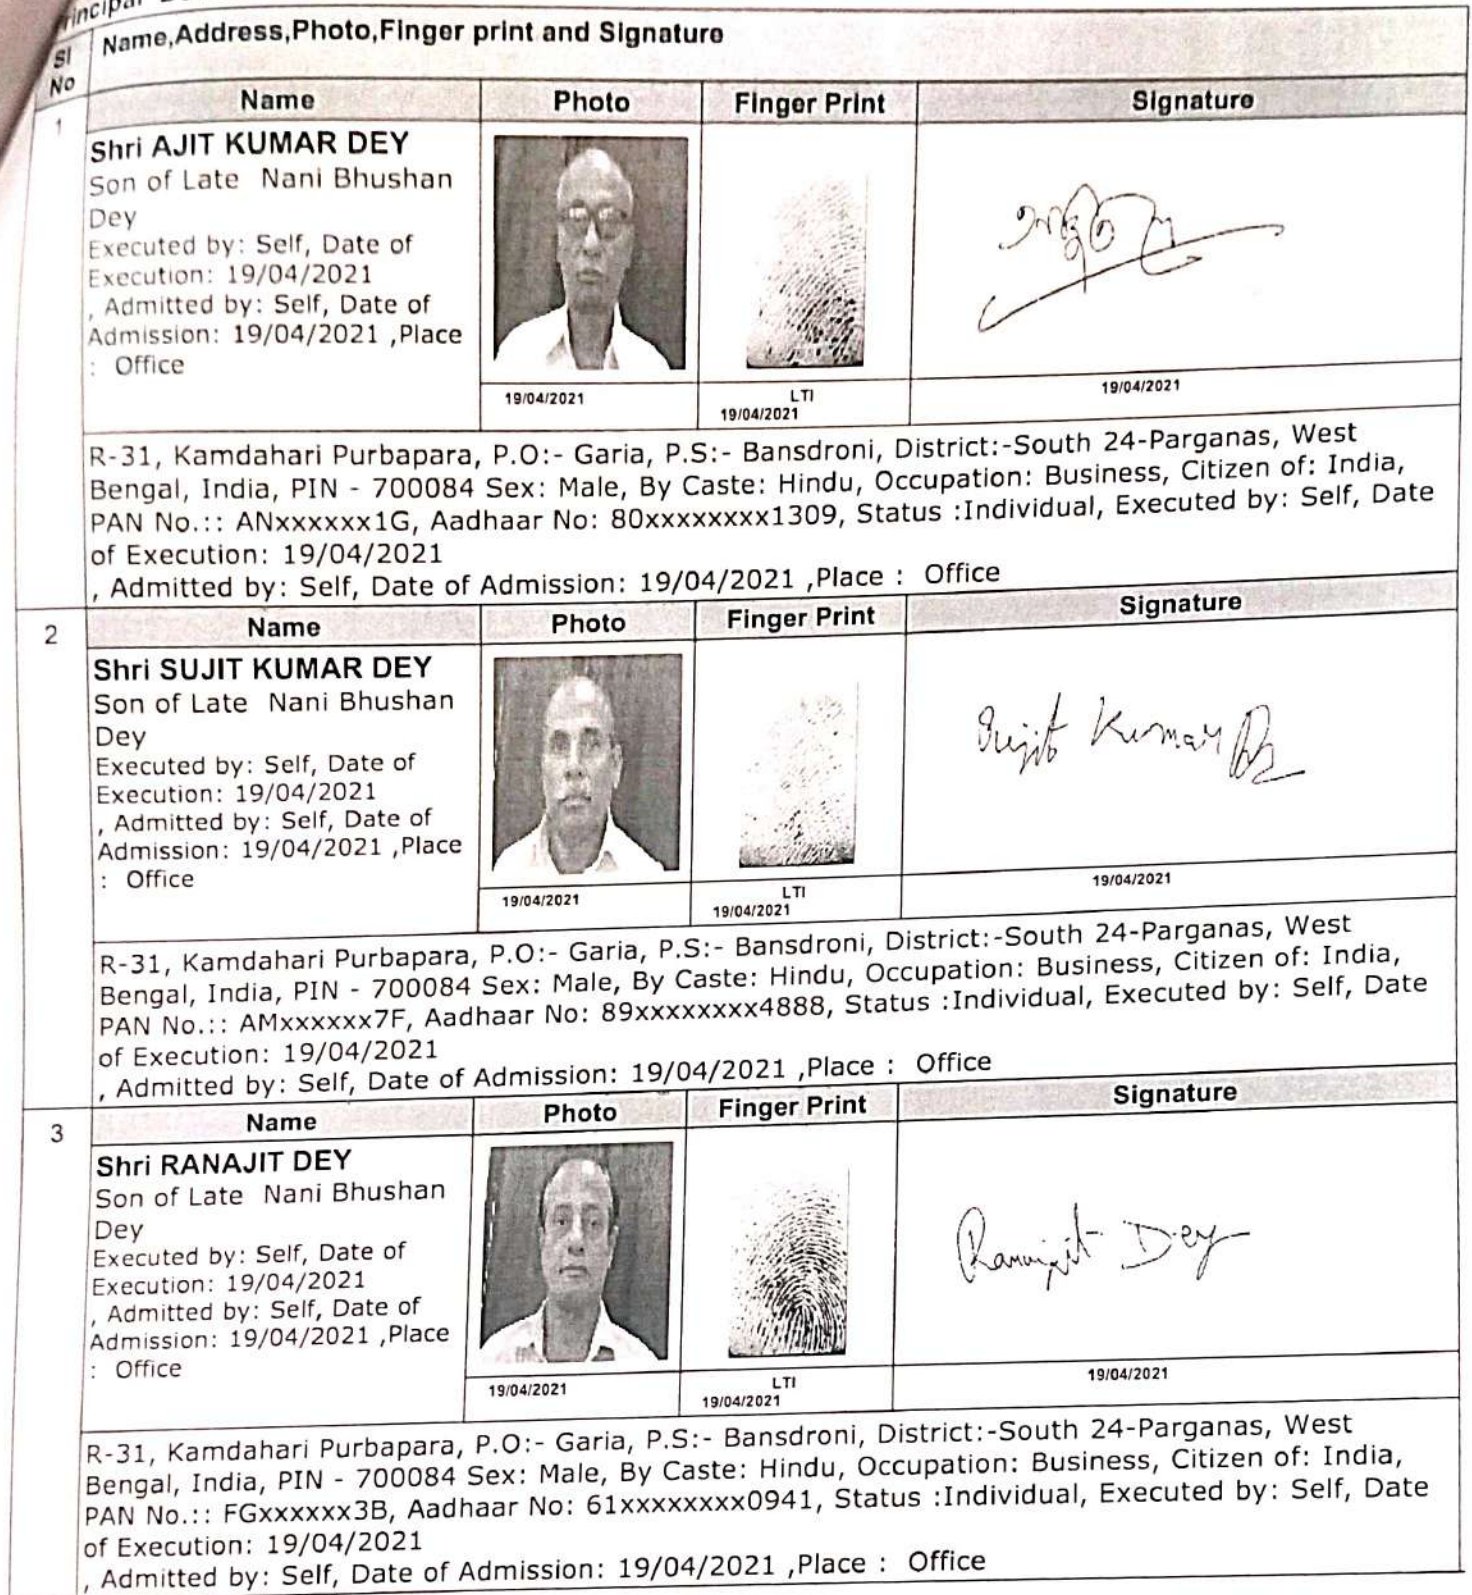 Principal
Sl No
Name,Address,Photo,Finger print and Signature
Name Photo Finger Print Signature
1
Shri AJIT KUMAR DEY
Son of Late Nani Bhushan
Dey
Executed by: Self, Date of
Execution: 19/04/2021
, Admitted by: Self, Date of
Admission: 19/04/2021 ,Place
: Office
19/04/2021
LTI
19/04/2021
19/04/2021
R-31, Kamdahari Purbapara, P.O:- Garia, P.S:- Bansdroni, District:-South 24-Parganas, West
Bengal, India, PIN - 700084 Sex: Male, By Caste: Hindu, Occupation: Business, Citizen of: India,
PAN No.:: ANxxxxxx1G, Aadhaar No: 80xxxxxxxx1309, Status :Individual, Executed by: Self, Date
of Execution: 19/04/2021
, Admitted by: Self, Date of Admission: 19/04/2021 ,Place : Office
2
Name Photo Finger Print Signature
Shri SUJIT KUMAR DEY
Son of Late Nani Bhushan
Dey
Executed by: Self, Date of
Execution: 19/04/2021
, Admitted by: Self, Date of
Admission: 19/04/2021 ,Place
: Office
Sujit Kumar Dey
19/04/2021
LTI
19/04/2021
19/04/2021
R-31, Kamdahari Purbapara, P.O:- Garia, P.S:- Bansdroni, District:-South 24-Parganas, West
Bengal, India, PIN - 700084 Sex: Male, By Caste: Hindu, Occupation: Business, Citizen of: India,
PAN No.:: AMxxxxxx7F, Aadhaar No: 89xxxxxxxx4888, Status :Individual, Executed by: Self, Date
of Execution: 19/04/2021
, Admitted by: Self, Date of Admission: 19/04/2021 ,Place : Office
3
Name Photo Finger Print Signature
Shri RANAJIT DEY
Son of Late Nani Bhushan
Dey
Executed by: Self, Date of
Execution: 19/04/2021
, Admitted by: Self, Date of
Admission: 19/04/2021 ,Place
: Office
Ranajit Dey
19/04/2021
LTI
19/04/2021
19/04/2021
R-31, Kamdahari Purbapara, P.O:- Garia, P.S:- Bansdroni, District:-South 24-Parganas, West
Bengal, India, PIN - 700084 Sex: Male, By Caste: Hindu, Occupation: Business, Citizen of: India,
PAN No.:: FGxxxxxx3B, Aadhaar No: 61xxxxxxxx0941, Status :Individual, Executed by: Self, Date
of Execution: 19/04/2021
, Admitted by: Self, Date of Admission: 19/04/2021 ,Place : Office